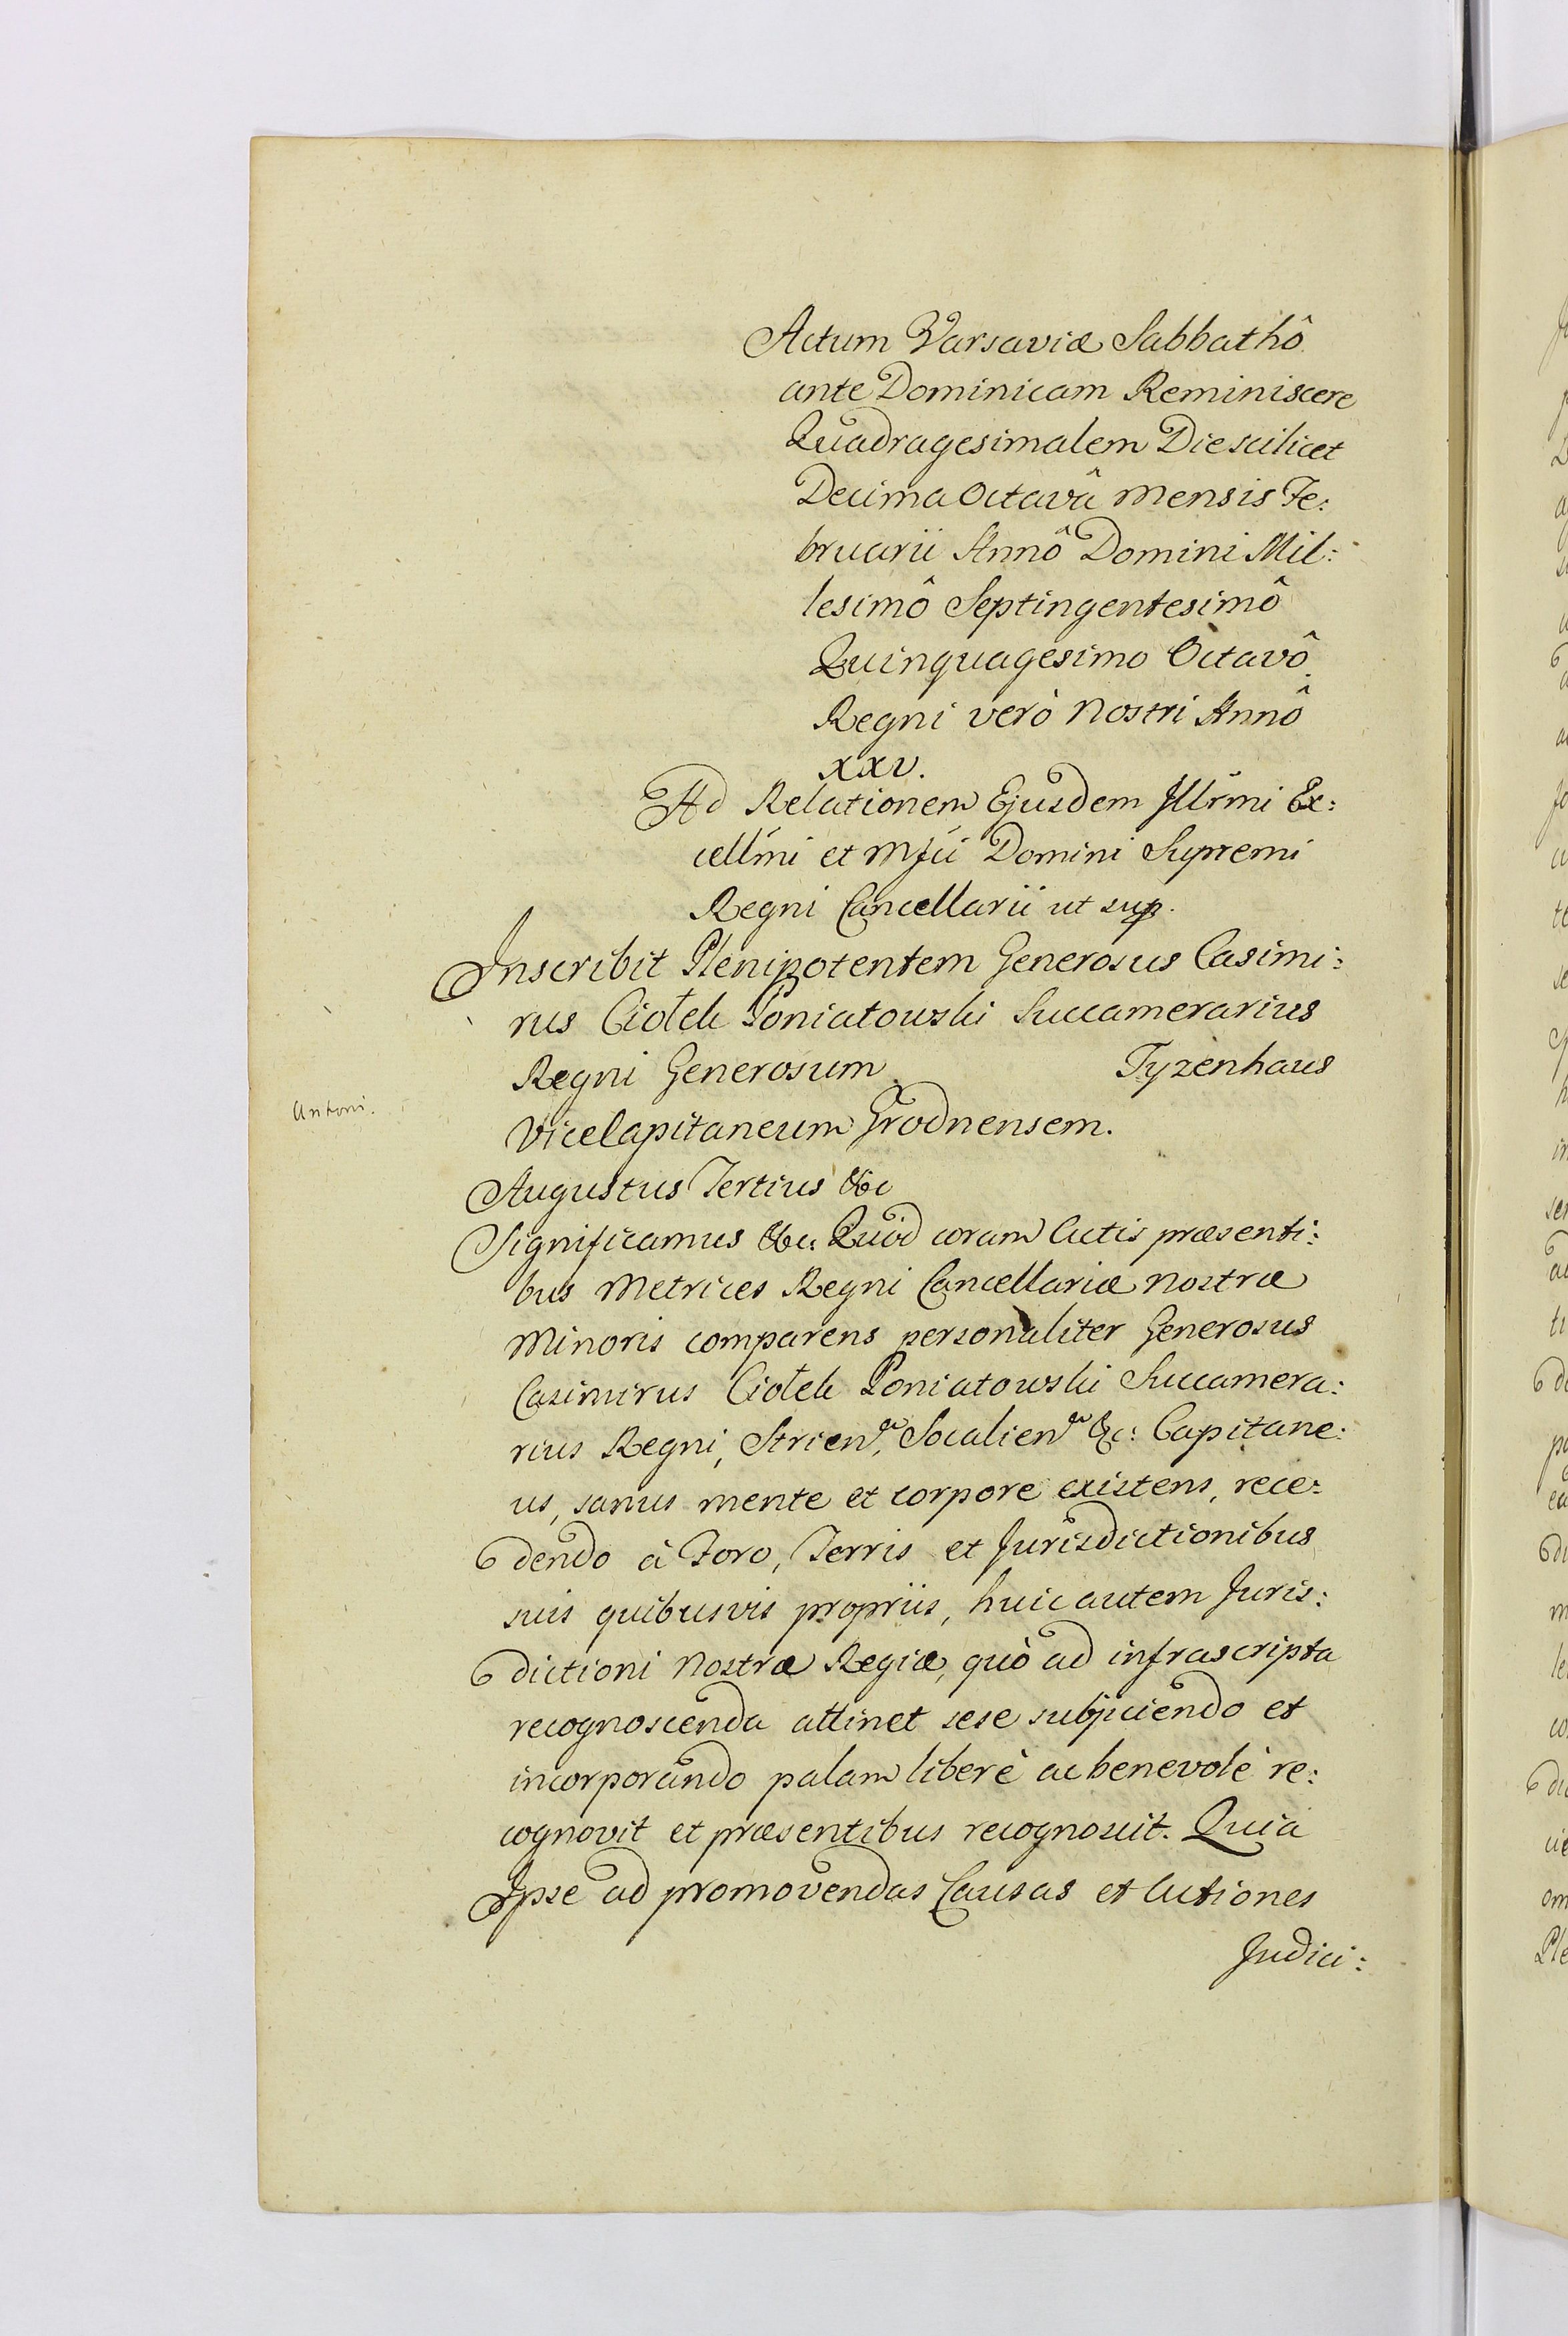 Actum Varsaviæ Sabbathô
ante Dominicam Reminiscere
Quadragesimalem Die scilicet
Decima Octavâ Mensis Fe:
bruarii Annô Domini Mil:
lesimô Septingentesimô
Quinquagesimo Octavô
Regni verò Nostri Annô
XXV.
Ad Relationem Ejusdem Illr̃mi Ex:
cellm̃i et Mfci Domini Supremi
Regni Cancellarii ut sup.
Inscribit Plenipotentem Generosus Casimi:
rus Ciołek Poniatowski Succamerarius
Regni Generosum Tyzenhaus
Antoni.
ViceCapitaneum Grodnensem.
Augustus Tertius &c
Significamus &c: Quod coram Actis præsenti:
bus Metrices Regni Cancellariæ Nostræ
Minoris comparens personaliter Generosus
Casimirus Ciołek Poniatowski Succamera:
rius Regni, Strien, Socalien &c: Capitane:
us, sanus mente et corpore existens, rece:
dendo à Foro, Terris et Jurisdictionibus
suis quibusvis propriis, huic autem Juris:
dictioni Nostræ Regiæ, quò ad infrascripta
recognoscenda attinet sese subjiciendo et
incorporando palam liberè ac benevolè re:
cognovit et præsentibus recognoscit. Quia
Ipse ad promovendas Causas et Actiones
Judici: